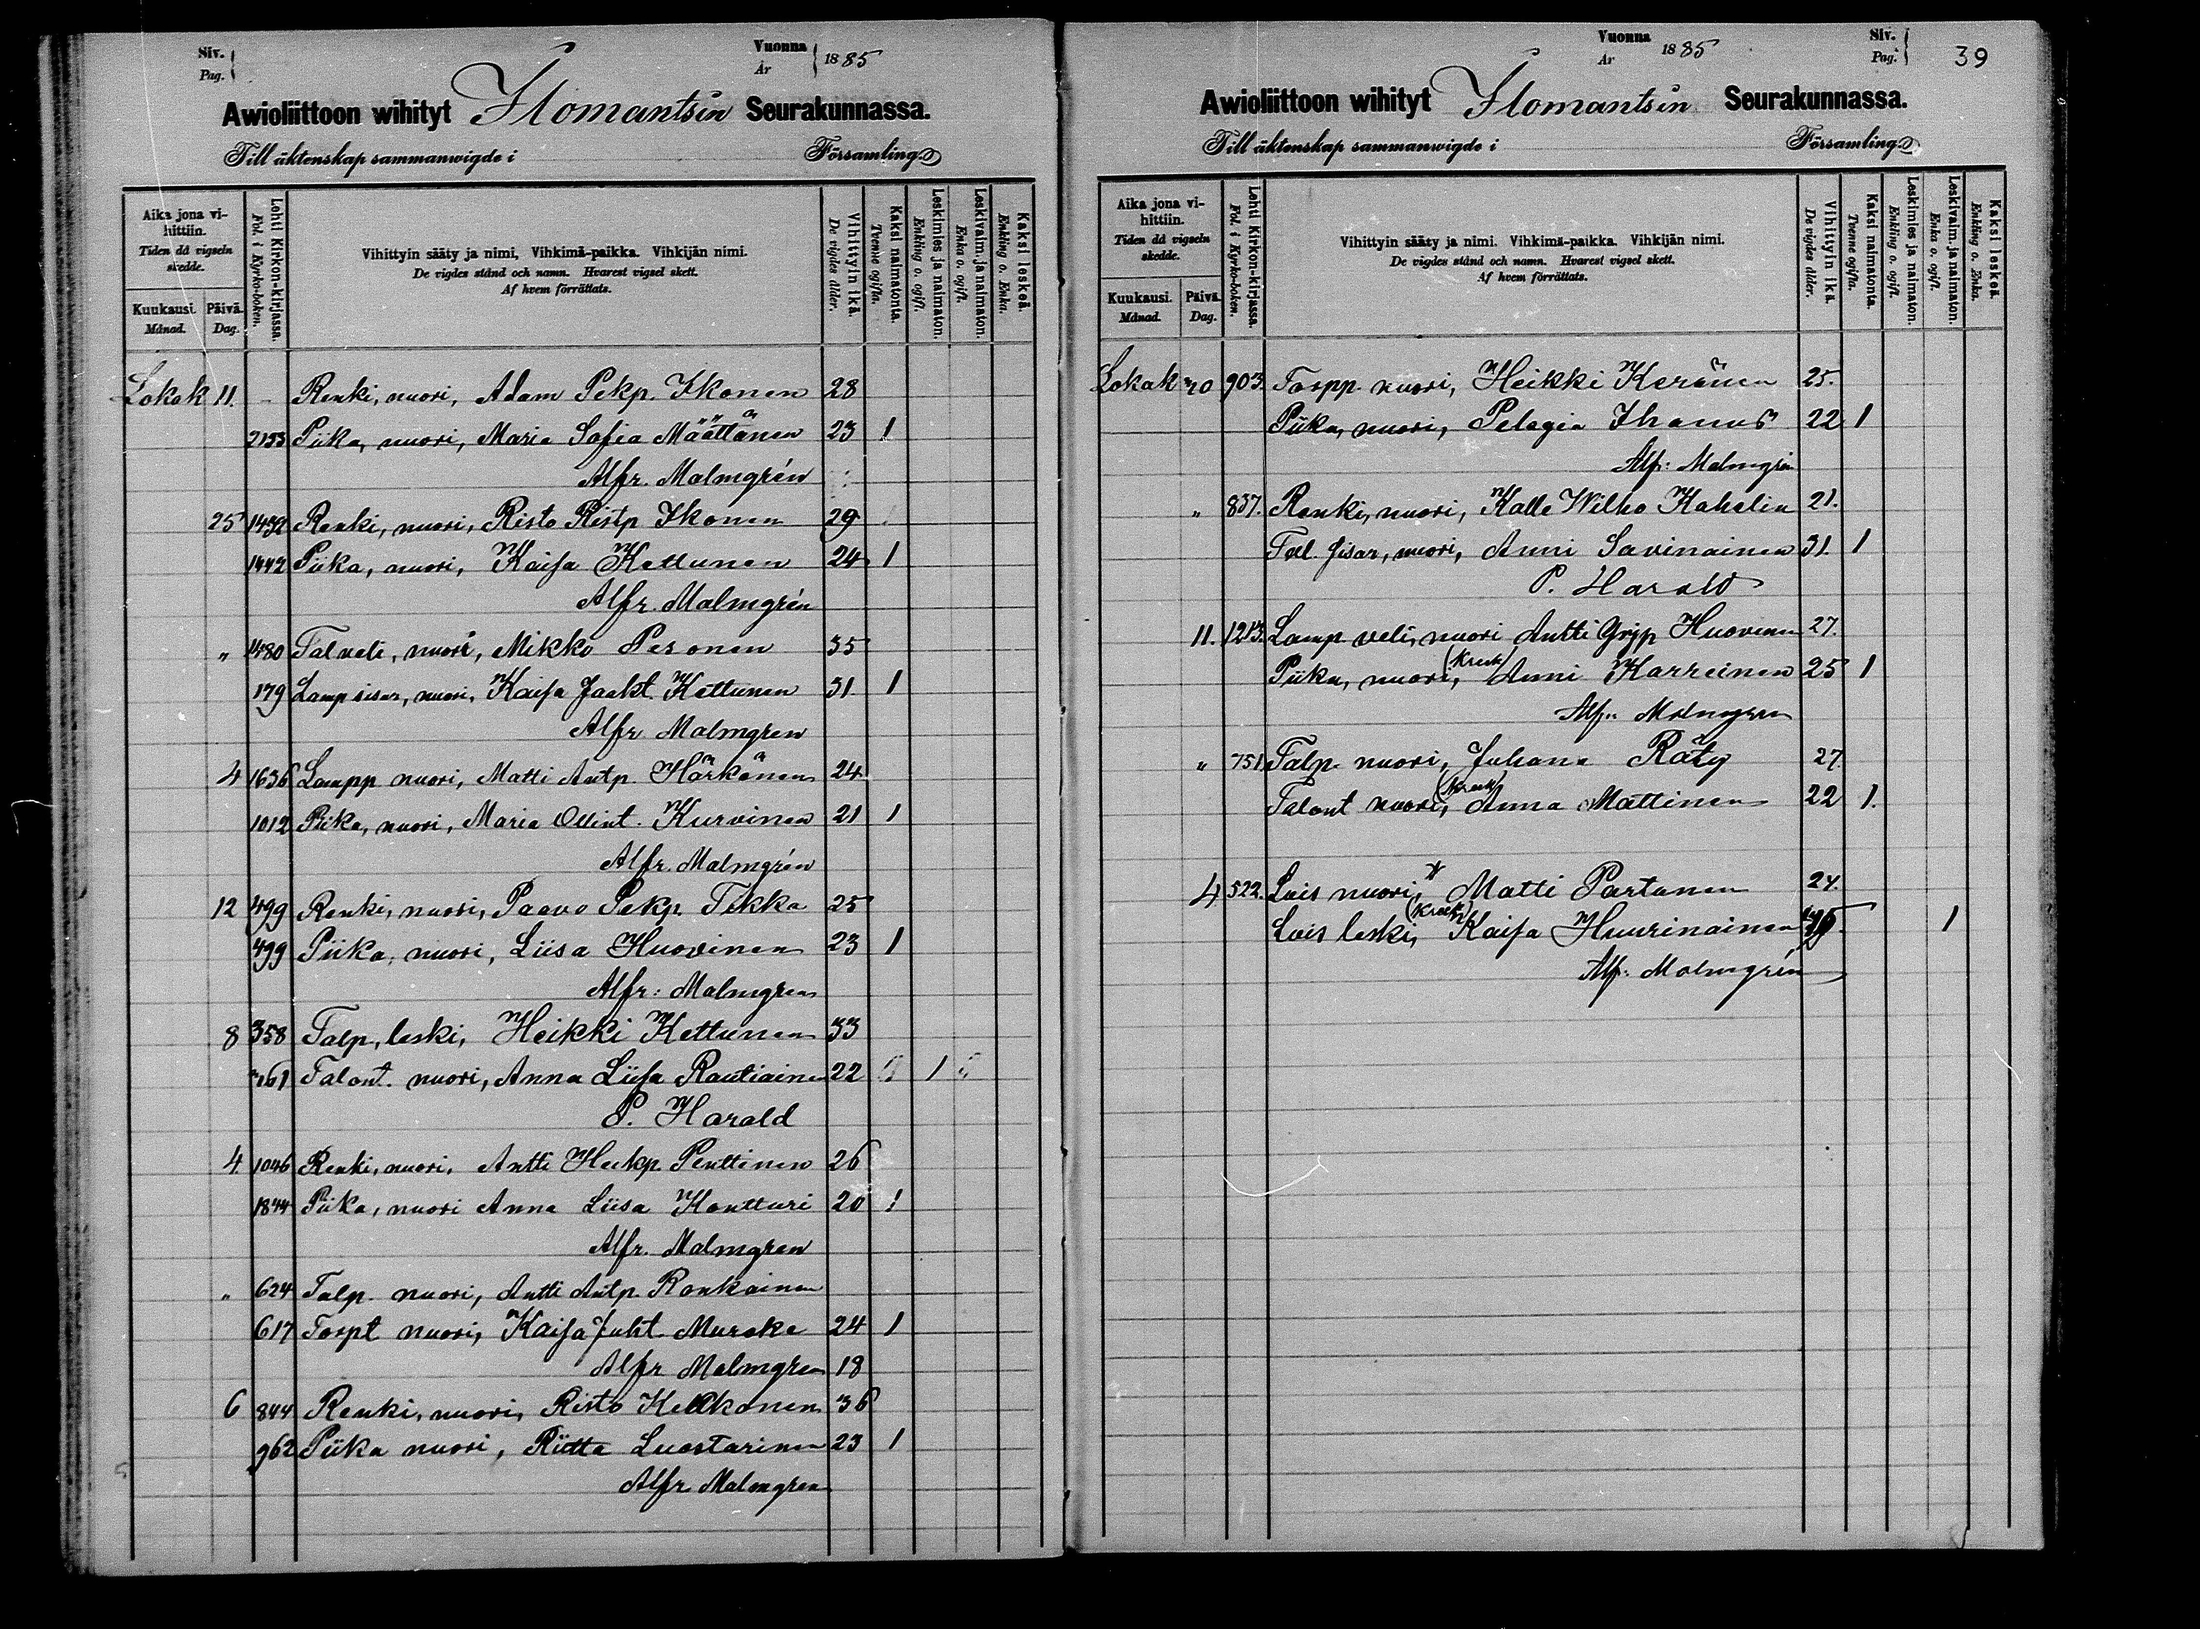 Siv.
Pag.
Vuonna
År
1885
Awioliittoon wihityt Ilomantsin Seurakunnassa.
Till äktenskap sammanwigde i Församling
Aika jona vi-
hittiin.
Tiden då vigseln
skedde.
Kuukausi. Päivä.
Månad. Dag.
Lehti Kirkon-kirjassa.
Fol. i Kyrko-boken.
Vihittyin sääty ja nimi, Vihkimä-paikka. Vihkijän nimi.
De vigdes stånd och namn. Hvarest vigsel skett.
Af hvem förrättats.
Vihittyin ikä.
De vigdes ålder.
Kaksi naimatonta.
Tvenne ogifta.
Leskimies ja naimaton.
Enkling o. ogift.
Leskivaim. ja naimaton.
Enka o. ogift.
Kaksi leskeä.
Enkling o. Enka.
Lokak 11. - Renki, nuori, Adam Pekp. Ikonen 28
2193 Piika, nuori, Maria Sofia Määttänen 23 1
Alfr. Malmgrén
25 1492 Renki, nuori, Risto Ristp Ikonen 29
1442 Piika, nuori, Kaisa Kettunen 24 1
Alfr. Malmgrén
" 1480 Tal veli, nuori, Mikko Pesonen 35
179 Lamp sisar, nuori, Kaisa Jaakt. Kettunen 31 1
Alfr. Malmgren
4 1636 Lampp nuori, Matti Antp. Härkönen 24
1012 Piika, nuori, Maria Ollint. Kurvinen 21 1
Alfr. Malmgrén
12 499 Renki, nuori, Paavo Pekp. Tikka 25
499 Piika, nuori, Liisa Huovinen 23 1
Alfr: Malmgren
8 358 Talp, leski, Heikki Kettunen 33
761 Talont. nuori, Anna Liisa Rautiainen 22 1
P. Harald
4 1046 Renki, nuori, Antti Heikp. Penttinen 26
1844 Piika, nuori Anna Liisa Kontturi 20 1
Alfr. Malmgren
" 624 Talp. nuori, Antti Antp. Ronkainen
617 Torpt nuori, Kaisa Juht. Muroke 24 1
Alfr Malmgren 18
6 844 Renki, nuori, Risto Heikkonen 36
962 Piika nuori, Riitta Luostarinen 23 1
Alfr Malmgren
Vuonna
År
1885
Siv.
Pag.
39
Awioliittoon wihityt Ilomantsin Seurakunnassa.
Till äktenskap sammanwigde i Församling
Aika jona vi-
hittiin.
Tiden då vigseln
skedde.
Kuukausi. Päivä.
Månad. Dag.
Lehti Kirkon-kirjassa.
Fol. i Kyrko-boken.
Vihittyin sääty ja nimi. Vihkimä-paikka. Vihkijän nimi.
De vigdes stånd och namn. Hvarest vigsel skett.
Af hvem förrättats.
Vihittyin ikä.
De vigdes ålder.
Kaksi naimatonta.
Tvenne ogifta.
Leskimies ja naimaton.
Enkling o. ogift.
Leskivaim. ja naimaton.
Enka o. ogift.
Kaksi leskeä.
Enkling o. Enka.
Lokak 20 903. Torpp. nuori, Heikki Keränen 25.
Piika, nuori, Pelagia Ihanus 22 1
Alfr: Malmgrén
" 837. Renki, nuori, Kalle Wilho Kahelin 21.
Tal. sisar, nuori, Anni Savinainen 31. 1
P. Harald
11. 1213. Lamp veli, nuori Antti Yrjp Huovinen 27.
Piika, nuori, (Kreik) Anni Karreinen 25 1
Alfr: Malmgren
" 751. Talp. nuori, Juhana Räty 27
Talont nuori, (Kreik) Anna Mattinen 22 1.
4 522. Lois nuori, * Matti Partanen 24.
Lois leski, (Kreik) Kaisa Huurinainen 1
Alfr: Malmgrén